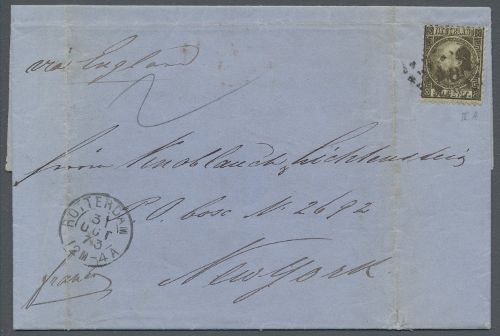 via England
NEDERLAND
2
Knoblauch & Lichtenstein
P.O. box No. 2692
New York
franco
ROTTERDAM
31
OCT
73
12M-4A
II A